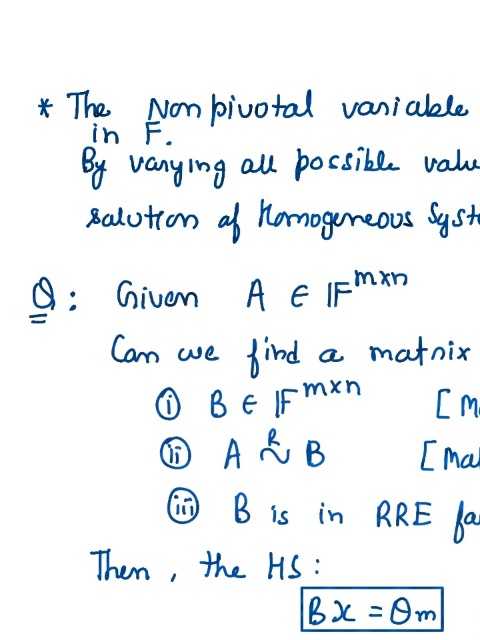 * The Nonpivotal variable
in F.
By varying all possible valu
salution of Homogeneous Syste
Q: Given A ∈ 𝔽^{m×n}
Can we find a matrix
(i) B ∈ 𝔽^{m×n} [ M
(ii) A \overset{R}{\sim} B [ Mat
(iii) B is in RRE fo
Then, the HS:
Bx = θm